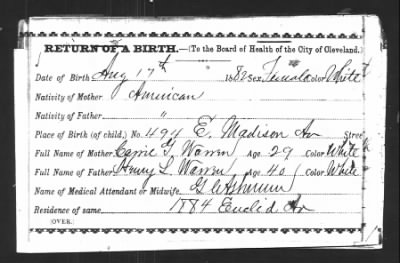 RETURN OF A BIRTH.—(To the Board of Health of the City of Cleveland.)
Date of Birth Aug 17th 1882 Sex, Female Color White
Nativity of Mother American
Nativity of Father "
Place of Birth (of child.) No. 494 E. Madison Av Street
Full Name of Mother Carrie Warren Age 29 Color White
Full Name of Father Henry L Warren Age 40 Color White
Name of Medical Attendant or Midwife,
Residence of same 1884 Euclid Av
(OVER.)